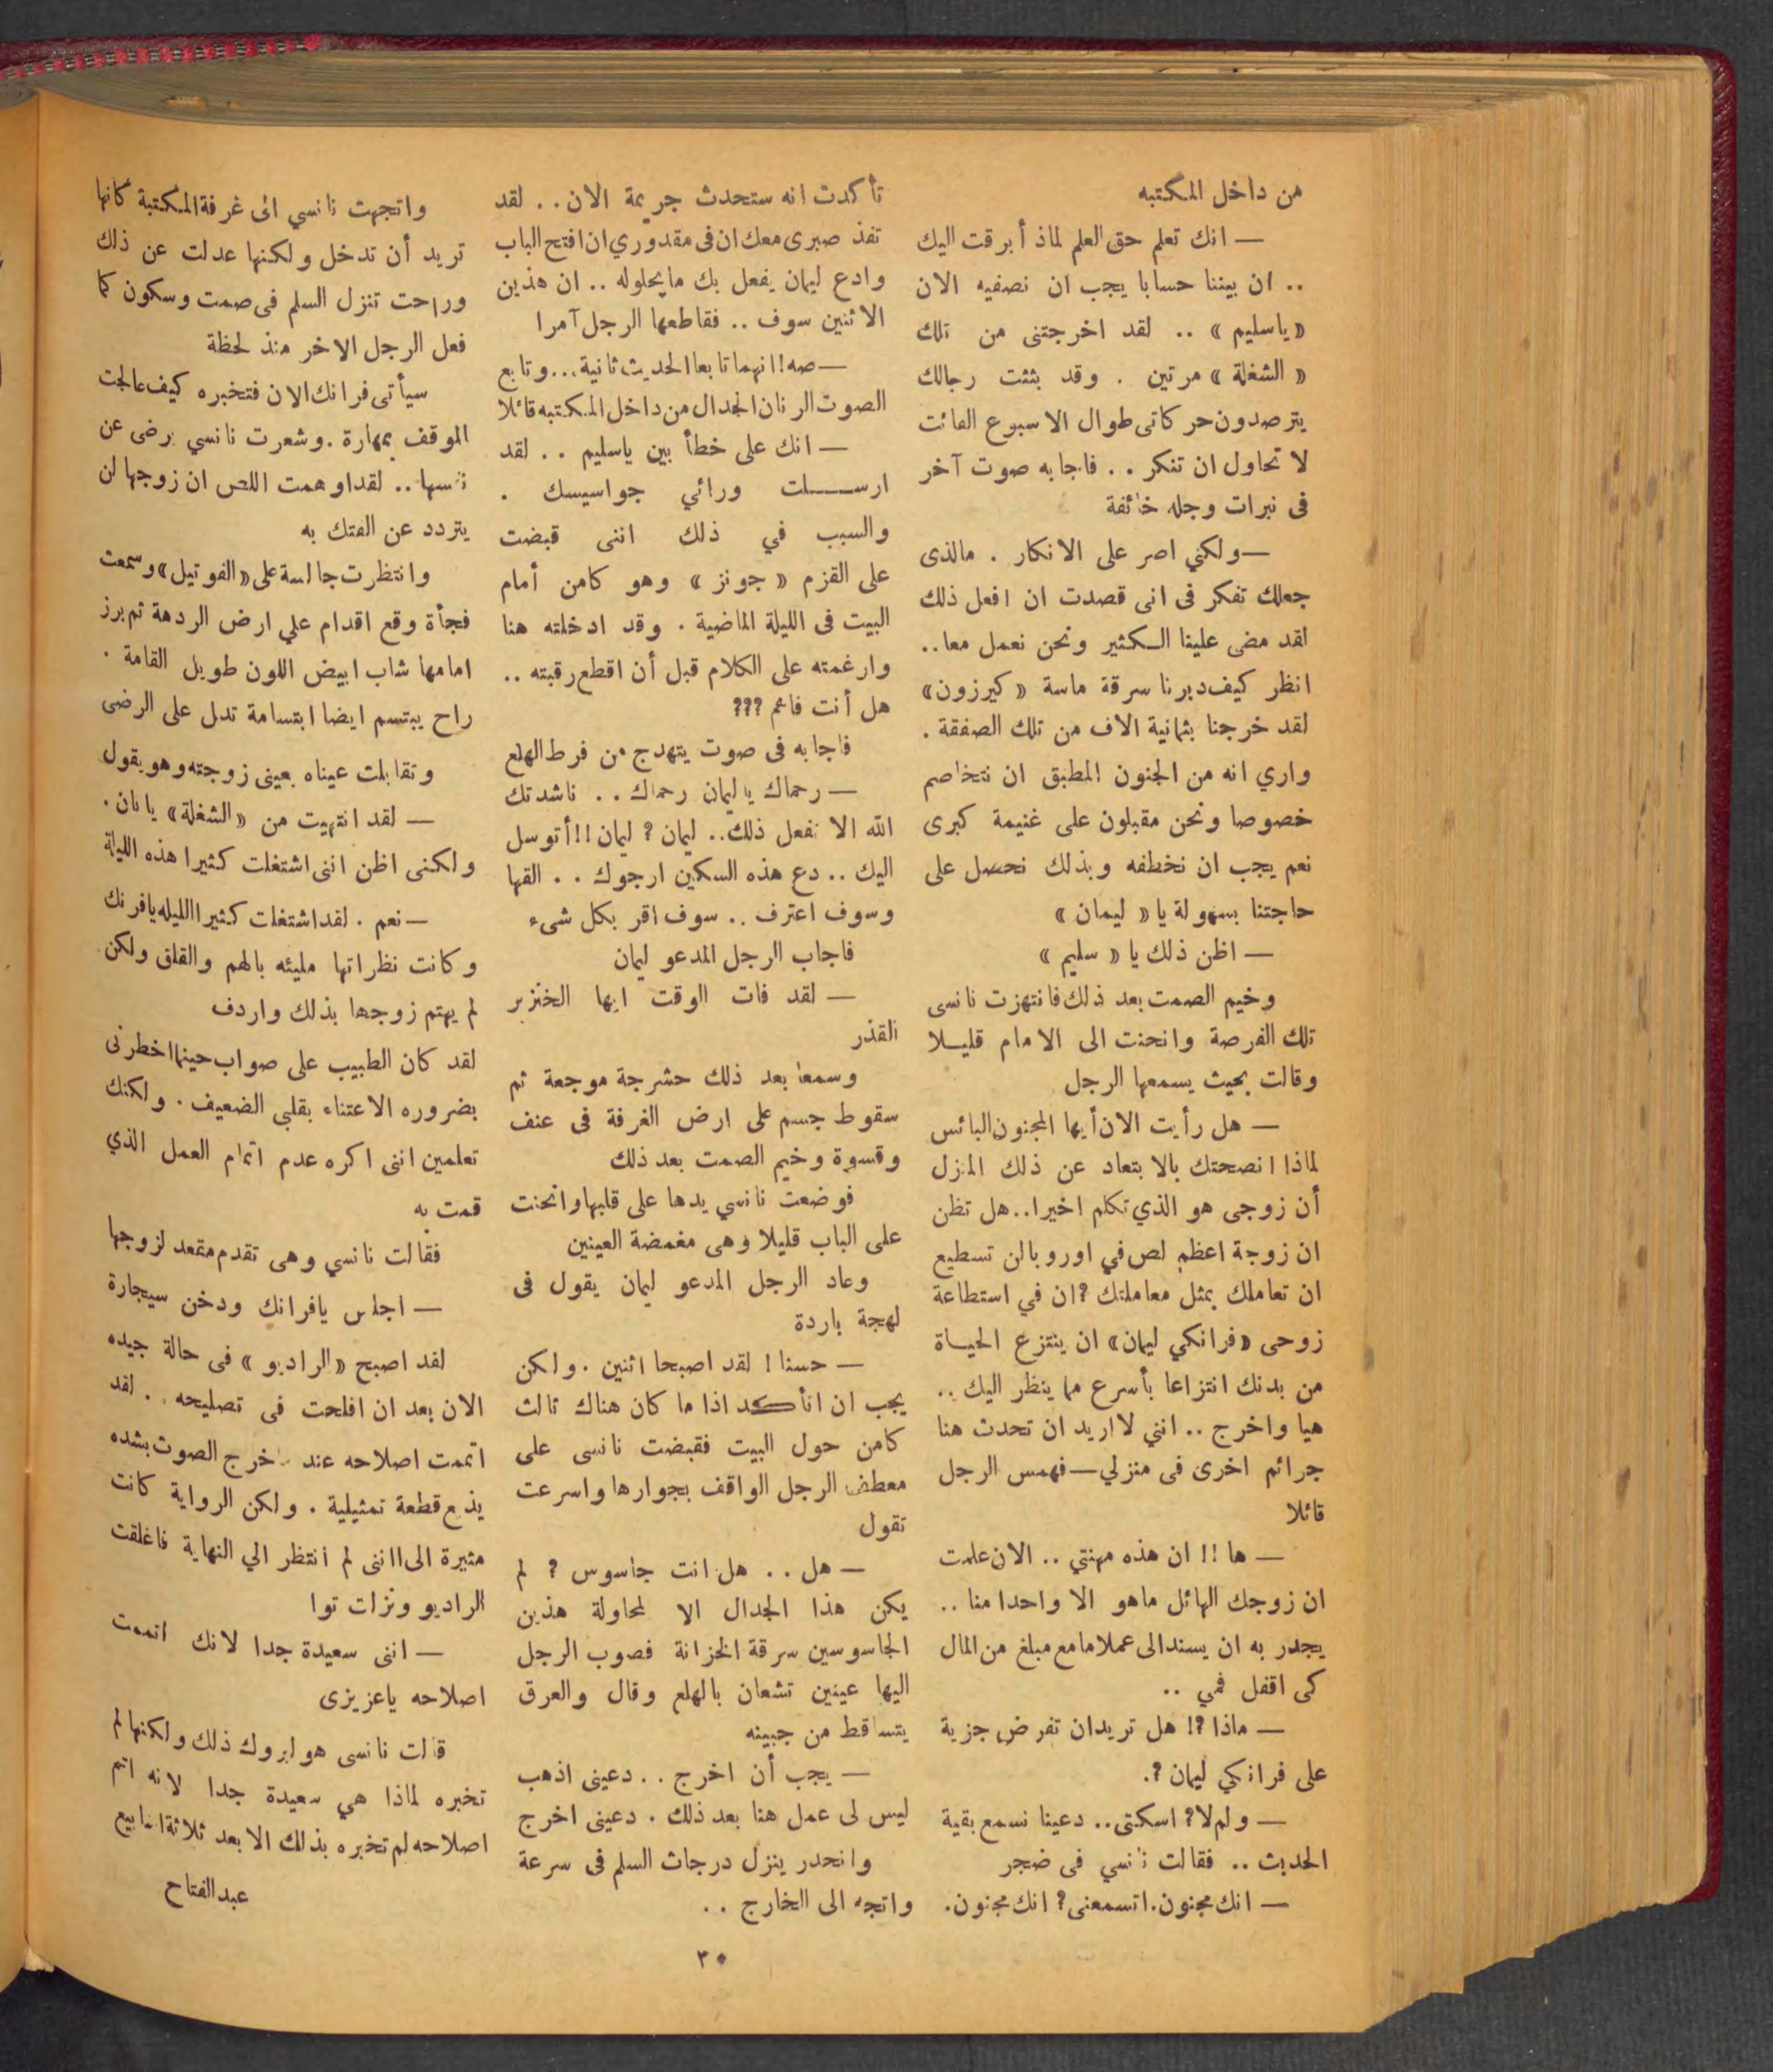 من داخل المكتبه
— انك تعلم حق العلم لماذ أبرقت اليك
.. ان بيننا حسابا يجب ان نصفيه الان
« ياسليم » .. لقد اخرجتنى من تلك
« الشغلة » مرتين . وقد بثثت رجالك
يترصدون حركاتى طوال الاسبوع الفائت
لا تحاول ان تنكر .. فاجابه صوت آخر
فى نبرات وجله خائفة
— ولكني اصر على الانكار . مالذى
جعلك تفكر فى انى قصدت ان افعل ذلك
لقد مضى علينا الكثير ونحن نعمل معا ..
انظر كيف دبرنا سرقة ماسة « كيرزون»
لقد خرجنا بثمانية الاف من تلك الصفقة .
واري انه من الجنون المطبق ان نتخاصم
خصوصا ونحن مقبلون على غنيمة كبرى
نعم يجب ان نخطفه وبذلك نحصل على
حاجتنا بسهولة يا « ليمان »
— اظن ذلك يا « سليم »
وخيم الصمت بعد ذلك فانتهزت نانسى
تلك الفرصة وانحنت الى الامام قليلا
وقالت بحيث يسمعها الرجل
— هل رأيت الان أيها المجنون البائس
لماذا انصحتك بالابتعاد عن ذلك المنزل
أن زوجى هو الذي تكلم اخيرا .. هل تظن
ان زوجة اعظم لص في اوروبا لن تسطيع
ان تعاملك بمثل معاملتك ? ان في استطاعة
زوحى «فرانكي ليمان» ان ينتزع الحياة
من بدنك انتزاعا بأسرع مما ينظر اليك ..
هيا واخرج .. انني لا اريد ان تحدث هنا
جرائم اخرى فى منزلي — فهمس الرجل
قائلا
— ها !! ان هذه مهنتي .. الان علمت
ان زوجك الهائل ماهو الا واحدا منا ..
يجدر به ان يسند الى عملا ما مع مبلغ من المال
كى اقفل فمي ..
— ماذا ?! هل تريد ان تفرض جزية
على فرانكي ليمان ?.
— ولم لا ? اسكتى .. دعينا نسمع بقية
الحديث .. فقالت نانسي فى ضجر
— انك مجنون . اتسمعنى ? انك مجنون .
تأكدت انه ستحدث جريمة الان .. لقد
تفذ صبرى معك ان فى مقدوري ان افتح الباب
وادع ليمان يفعل بك ما يحلوله .. ان هذين
الاثنين سوف .. فقاطعها الرجل آمرا
— صه ! انهما تابعا الحديث ثانية ... وتابع
الصوت الرنان الجدال من داخل المكتبه قائلا
— انك على خطأ بين ياسليم .. لقد
ارسلت ورائي جواسيسك .
والسبب في ذلك اننى قبضت
على القزم « جونز » وهو كامن أمام
البيت فى الليلة الماضية . وقد ادخلته هنا
وارغمته على الكلام قبل أن اقطع رقبته ..
هل أنت فاهم ???
فاجابه فى صوت يتهدج من فرط الهلع
— رحماك يا ليمان رحماك .. ناشدتك
الله الا تفعل ذلك .. ليمان ? ليمان !! أتوسل
اليك .. دع هذه السكين ارجوك .. القها
وسوف اعترف .. سوف اقر بكل شىء
فاجاب الرجل المدعو ليمان
— لقد فات الوقت ايها الخنزير
القذر
وسمعا بعد ذلك حشرجة موجعة ثم
سقوط جسم على ارض الغرفة فى عنف
وقسوة وخيم الصمت بعد ذلك
فوضعت نانسي يدها على قلبها وانحنت
على الباب قليلا وهى مغمضة العينين
وعاد الرجل المدعو ليمان يقول فى
لهجة باردة
— حسنا ! لقد اصبحا اثنين . ولكن
يجب ان اتأكد اذا ما كان هناك ثالث
كامن حول البيت فقبضت نانسى على
معطف الرجل الواقف بجوارها واسرعت
تقول
— هل .. هل انت جاسوس ? لم
يكن هذا الجدال الا لمحاولة هذين
الجاسوسين سرقة الخزانة فصوب الرجل
اليها عينين تشعان بالهلع وقال والعرق
يتساقط من جبينه
— يجب أن اخرج .. دعينى اذهب
ليس لى عمل هنا بعد ذلك . دعينى اخرج
وانحدر ينزل درجات السلم فى سرعة
واتجه الى الخارج ..
واتجهت نانسي الى غرفة المكتبة كانها
تريد أن تدخل ولكنها عدلت عن ذلك
وراحت تنزل السلم فى صمت وسكون كما
فعل الرجل الاخر منذ لحظة
سيأتى فرانك الان فتخبره كيف عالجت
الموقف بمهارة . وشعرت نانسي برضى عن
نفسها .. لقد اوهمت اللص ان زوجها لن
يتردد عن الفتك به
وانتظرت جالسة على «الفوتيل» وسمعت
فجأة وقع اقدام علي ارض الردهة ثم برز
امامها شاب ابيض اللون طويل القامة .
راح يبتسم ايضا ابتسامة تدل على الرضى
وتقابلت عيناه بعينى زوجته وهو يقول
— لقد انتهيت من «الشغلة» يا نان .
ولكنى اظن اننى اشتغلت كثيرا هذه الليلة
— نعم . لقد اشتغلت كثيرا الليله يافرنك
وكانت نظراتها مليئه بالهم والقلق ولكن
لم يهتم زوجها بذلك واردف
لقد كان الطبيب على صواب حينما اخطرنى
بضروره الاعتناء بقلبى الضعيف . ولكنك
تعلمين اننى اكره عدم اتمام العمل الذي
قمت به
فقالت نانسي وهى تقدم مقعد لزوجها
— اجلس يافرانك ودخن سيجارة
لقد اصبح « الراديو » فى حالة جيده
الان بعد ان افلحت فى تصليحه . لقد
اتممت اصلاحه عند خرج الصوت بشده
يذيع قطعة تمثيلية . ولكن الرواية كانت
مثيرة الى اننى لم انتظر الي النهاية فاغلقت
الراديو ونزلت توا
— اننى سعيدة جدا لانك اتممت
اصلاحه ياعزيزى
قالت نانسى هوليروك ذلك ولكنها لم
تخبره لماذا هي سعيدة جدا لانه اتم
اصلاحه لم تخبره بذلك الا بعد ثلاثة اسابيع
عبد الفتاح
٣٥